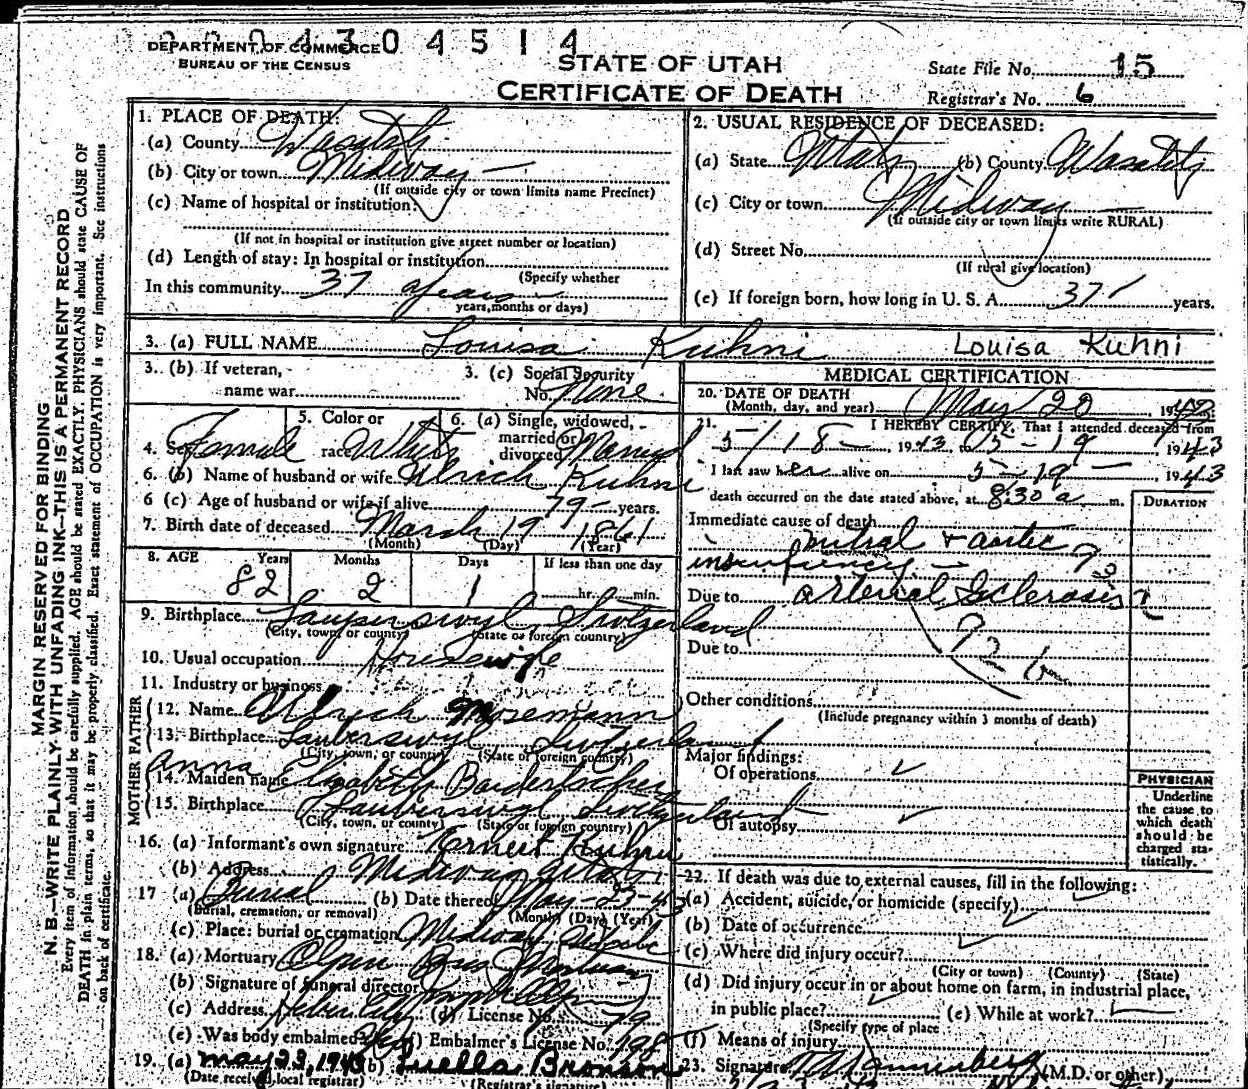 2 0 0 4 3 0 4 5 1 4
DEPARTMENT OF COMMERCE
BUREAU OF THE CENSUS
STATE OF UTAH
CERTIFICATE OF DEATH
State File No. 15
Registrar's No. 6
MARGIN RESERVED FOR BINDING
N. B.—WRITE PLAINLY WITH UNFADING INK—THIS IS A PERMANENT RECORD
Every item of information should be carefully supplied. AGE should be stated EXACTLY. PHYSICIANS should state CAUSE OF
DEATH in plain terms, so that it may be properly classified. Exact statement of OCCUPATION is very important. See instructions
on back of certificate.
1. PLACE OF DEATH:
(a) County Wasatch
(b) City or town Midway
(If outside city or town limits name Precinct)
(c) Name of hospital or institution:
(If not in hospital or institution give street number or location)
(d) Length of stay: In hospital or institution
(Specify whether
In this community 37 years
years, months or days)
2. USUAL RESIDENCE OF DECEASED:
(a) State Utah (b) County Wasatch
(c) City or town Midway
(If outside city or town limits write RURAL)
(d) Street No.
(If rural give location)
(e) If foreign born, how long in U. S. A. 37 years.
3. (a) FULL NAME Louisa Kuhni Louisa Kuhni
3. (b) If veteran,
name war
3. (c) Social Security
No. None
4. Sex Female
5. Color or
race White
6. (a) Single, widowed,
married or
divorced Married
6. (b) Name of husband or wife Ulrich Kuhni
6 (c) Age of husband or wife if alive 79 years.
7. Birth date of deceased March 19 1861
(Month) (Day) (Year)
8. AGE Years Months Days If less than one day
82 2 1 hr. min.
9. Birthplace Switzerland
(City, town, or county) (State or foreign country)
10. Usual occupation Housewife
11. Industry or business
FATHER
12. Name Ulrich Mosemann
13. Birthplace Lauberswyl Switzerland
(City, town, or county) (State or foreign country)
MOTHER
14. Maiden name Anna Elizabeth
15. Birthplace Lauberswyl Switzerland
(City, town, or county) (State or foreign country)
16. (a) Informant's own signature Ernest Kuhni
(b) Address Midway Utah
17 (a) Burial (b) Date thereof May-23-43
(Burial, cremation, or removal) (Month) (Day) (Year)
(c) Place: burial or cremation Midway
18. (a) Mortuary Olpin Bros Mortuary
(b) Signature of funeral director
(c) Address Heber City (d) License No. 79
(e) Was body embalmed Yes (f) Embalmer's License No. 198
19. (a) May 23, 1943 (b) Luella Bronson
(Date received local registrar) (Registrar's signature)
MEDICAL CERTIFICATION
20. DATE OF DEATH
(Month, day, and year) May 20, 1943
21. I HEREBY CERTIFY, That I attended deceased from
5-18-, 1943 5-19 1943
I last saw her alive on 5-19-, 1943
death occurred on the date stated above, at 8:30 a m.
DURATION
Immediate cause of death
mitral & aortic
insufficiency
Due to arterial Sclerosis
Due to
92 b
Other conditions
(Include pregnancy within 3 months of death)
Major findings:
Of operations
Of autopsy
PHYSICIAN
Underline
the cause to
which death
should be
charged sta-
tistically.
22. If death was due to external causes, fill in the following:
(a) Accident, suicide, or homicide (specify)
(b) Date of occurrence
(c) Where did injury occur?
(City or town) (County) (State)
(d) Did injury occur in or about home on farm, in industrial place,
in public place? (e) While at work?
(Specify type of place
(f) Means of injury
23. Signature (M.D. or other)